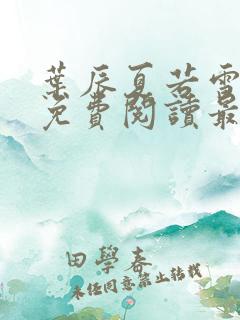 葉辰夏若雪
免費閱讀最
田學春
未经同意禁止转载